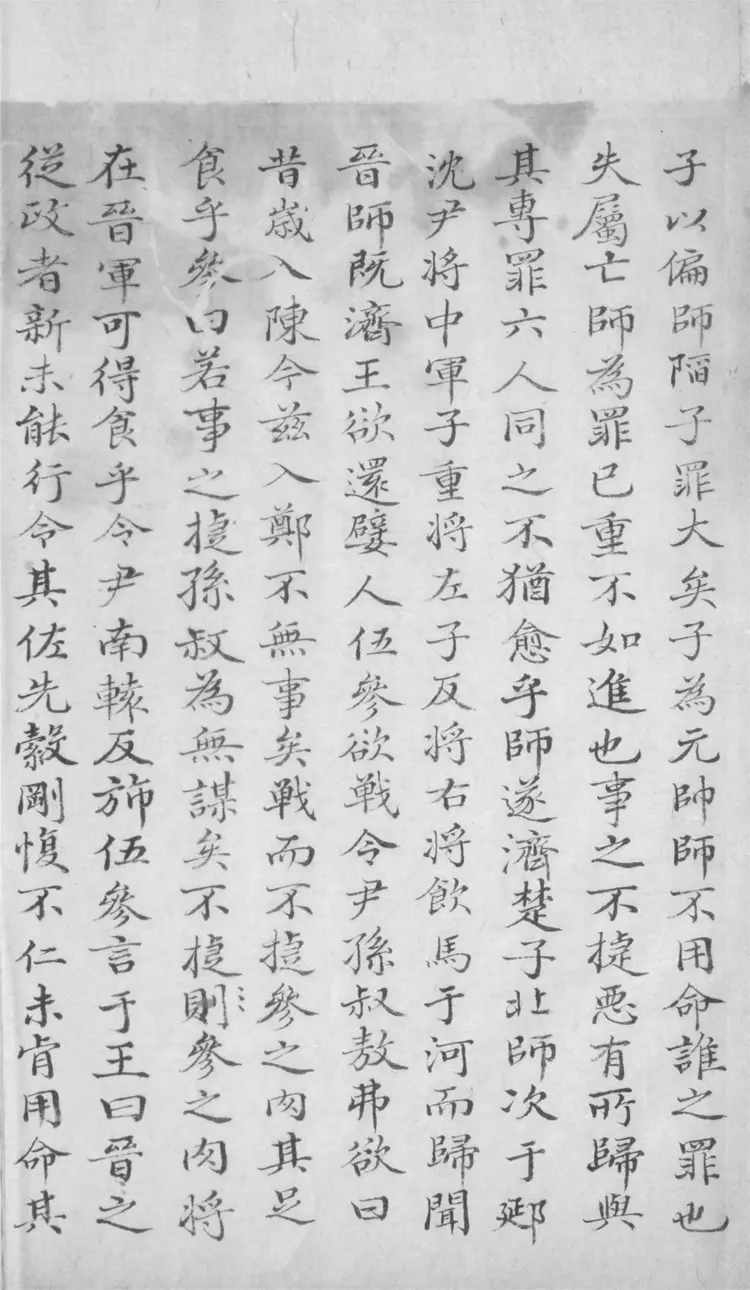 子以偏師陷子罪大矣子為元帥師不用命誰之罪也
失屬亡師為罪已重不如進也事之不捷惡有所歸與
其專罪六人同之不猶愈乎師遂濟楚子北師次于郔
沈尹将中軍子重将左子反将右将飲馬于河而歸聞
晉師既濟王欲還嬖人伍參欲戰令尹孫叔敖弗欲曰
昔歲入陳今茲入鄭不無事矣戰而不捷參之肉其足
食乎參曰若事之捷孫叔為無謀矣不捷則參之肉将
在晉軍可得食乎令尹南轅反斾伍參言于王曰晉之
從政者新未能行令其佐先縠剛愎不仁未肯用命其